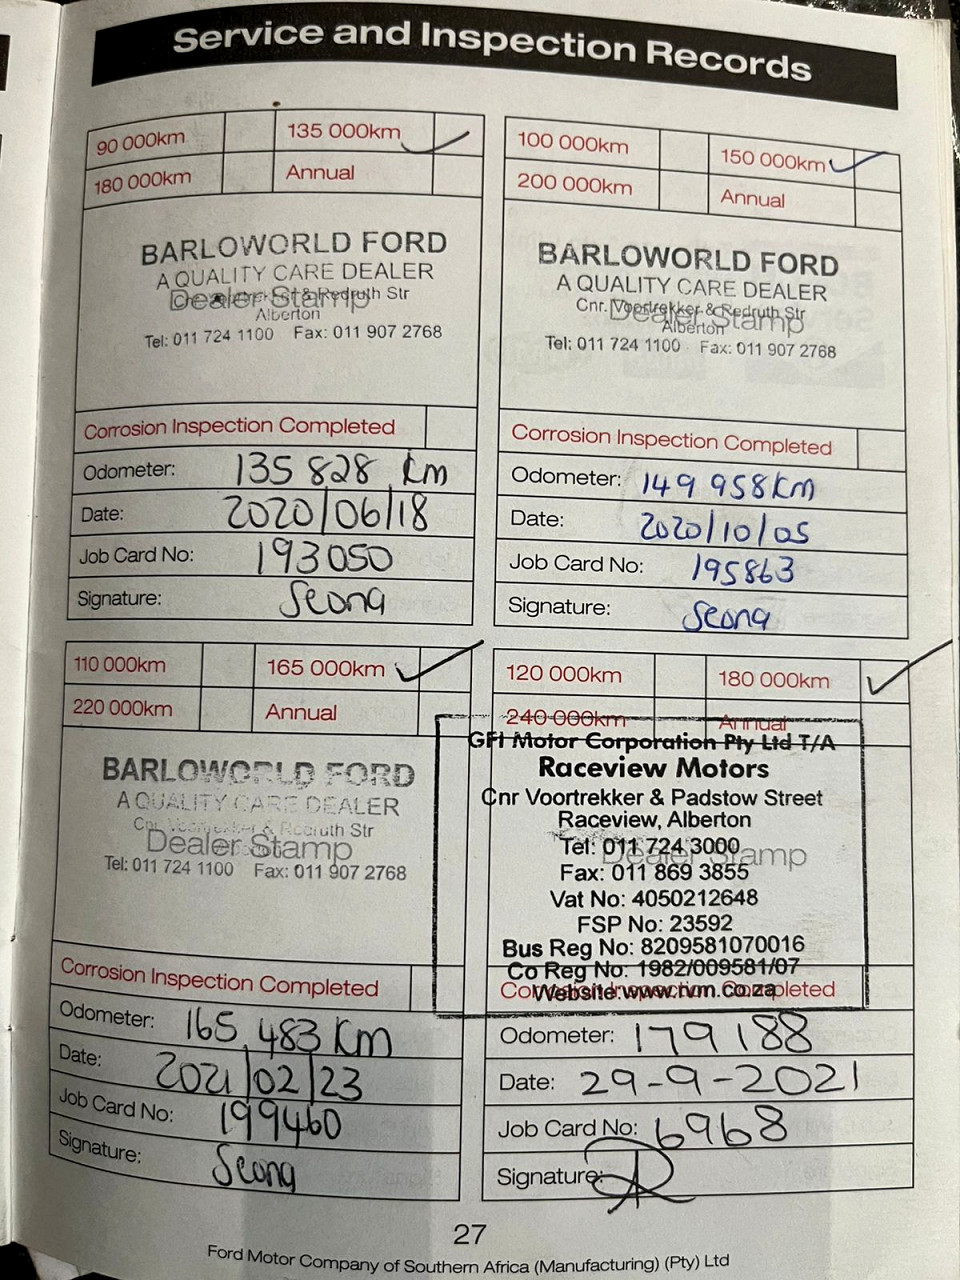 Service and Inspection Records
90 000km 135 000km ✓
180 000km Annual
BARLOWORLD FORD
A QUALITY CARE DEALER
Dealer Stamp
& Redruth Str
Alberton
Tel: 011 724 1100 Fax: 011 907 2768
Corrosion Inspection Completed
Odometer: 135 828 km
Date: 2020/06/18
Job Card No: 193050
Signature: Seona
100 000km 150 000km ✓
200 000km Annual
BARLOWORLD FORD
A QUALITY CARE DEALER
Cnr. Voortrekker & Redruth Str
Dealer Stamp
Alberton
Tel: 011 724 1100 Fax: 011 907 2768
Corrosion Inspection Completed
Odometer: 149 958km
Date: 2020/10/05
Job Card No: 195863
Signature: Seona
110 000km 165 000km ✓
220 000km Annual
BARLOWORLD FORD
A QUALITY CARE DEALER
Cnr Voortrekker & Redruth Str
Dealer Stamp
Tel: 011 724 1100 Fax: 011 907 2768
Corrosion Inspection Completed
Odometer: 165 483 km
Date: 2021/02/23
Job Card No: 199460
Signature: Seona
120 000km 180 000km ✓
240 000km Annual
GFI Motor Corporation Pty Ltd T/A
Raceview Motors
Cnr Voortrekker & Padstow Street
Raceview, Alberton
Tel: 011 724 3000
Dealer Stamp
Fax: 011 869 3855
Vat No: 4050212648
FSP No: 23592
Bus Reg No: 8209581070016
Co Reg No: 1982/009581/07
Corrosion Inspection Completed
Website:www.rvm.co.za
Odometer: 179188
Date: 29-9-2021
Job Card No: 6968
Signature:
27
Ford Motor Company of Southern Africa (Manufacturing) (Pty) Ltd